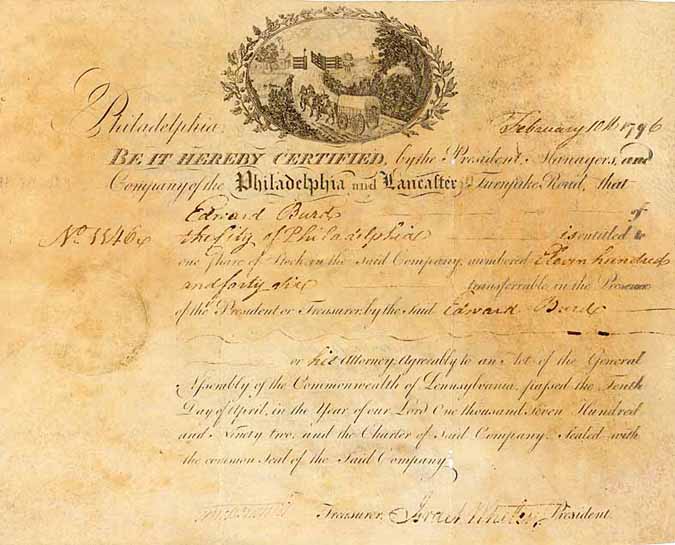 Philadelphia February 10th 1796
BE IT HEREBY CERTIFIED, by the President, Managers, and
Company of the Philadelphia and Lancaster Turnpike Road, that
Edward Burd of
No. 1146 the City of Philadelphia is entitled to
one Share of Stock in the said Company, numbered Eleven hundred
and forty six transferrable in the Presence
of the President or Treasurer, by the said Edward Burd
or his Attorney, Agreably to an Act of the General
Assembly of the Commonwealth of Pennsylvania, passed the Tenth
Day of April, in the Year of our Lord One thousand Seven Hundred
and Ninety two, and the Charter of Said Company. Sealed with
the common Seal of the Said Company
Treasurer, Israel Whelen, President.